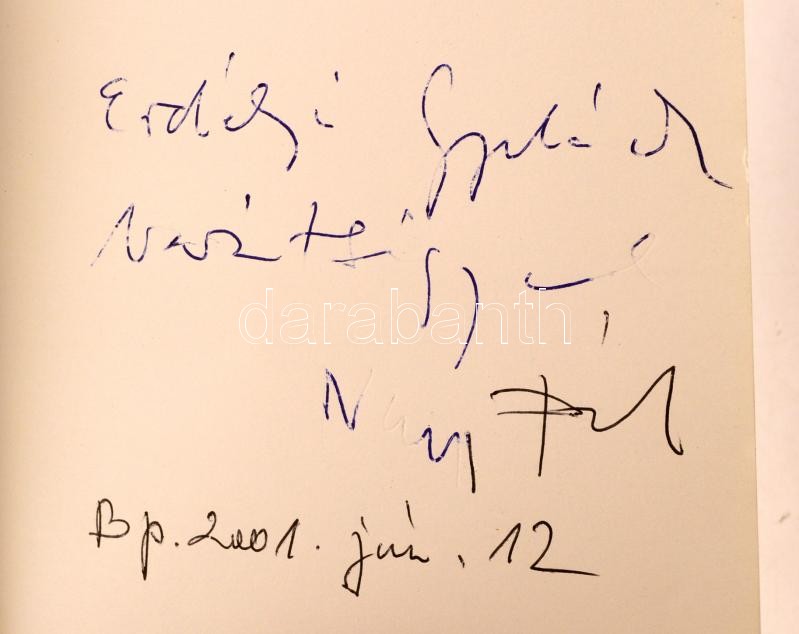 Erdélyi Gyulának
barátsággal
darabanth
Nagy Pál
Bp. 2001. jún. 12